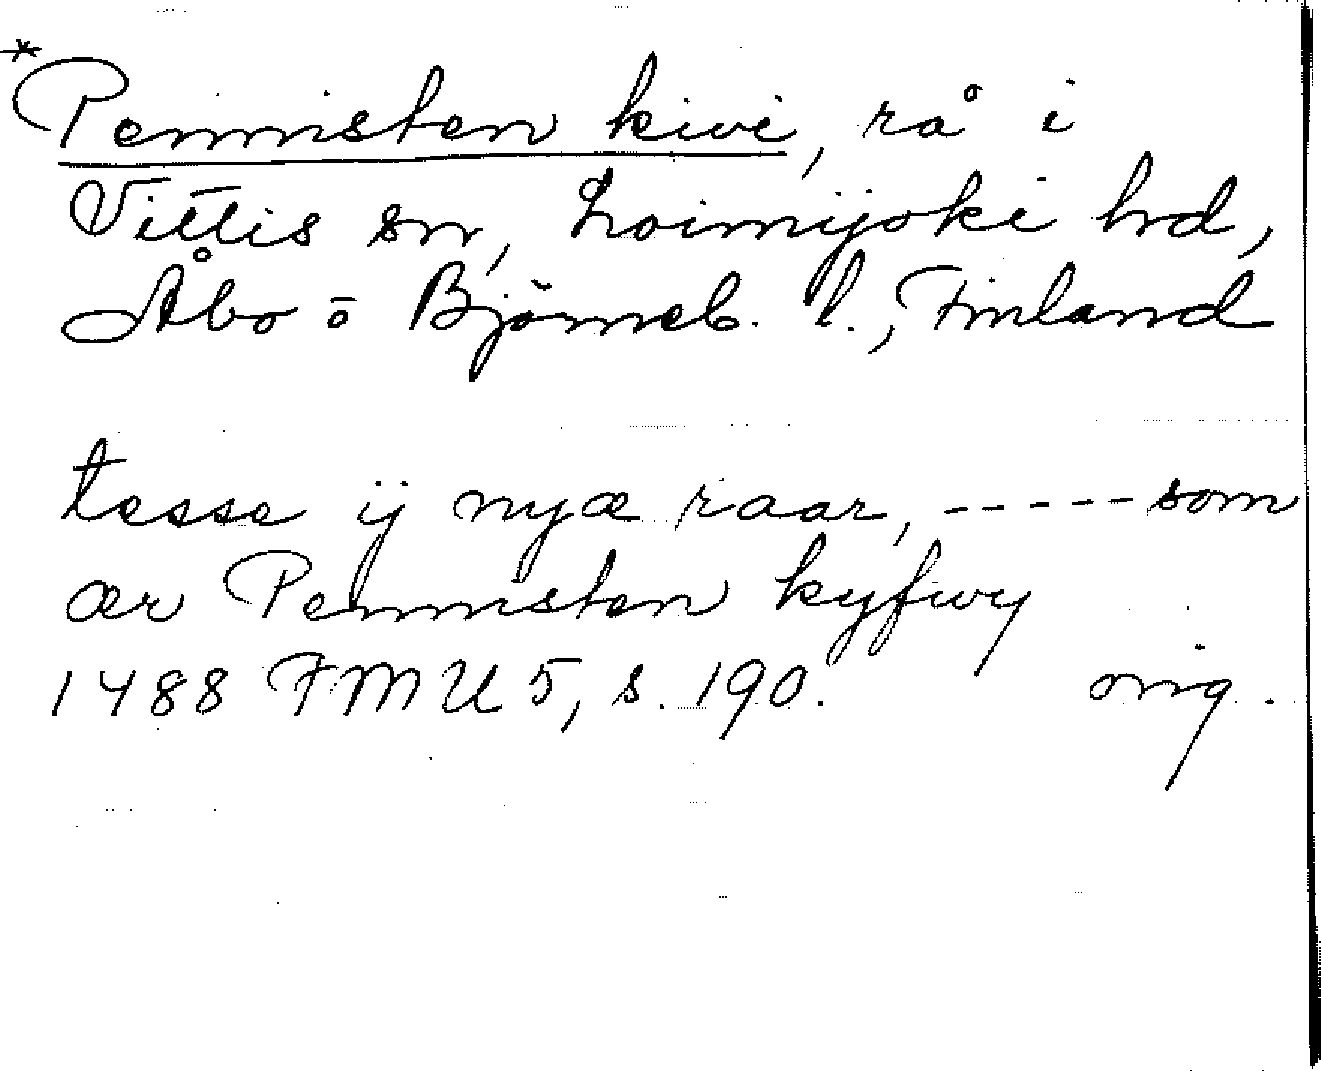 *Pennisten kivi, rå i
Vittis sn, Loimijoki hrd,
Åbo o Björneb. l., Finland
tesse ij nyæ raar, ----- som
ær Pennisten kyfwy
1488 FMU 5, s. 190. orig.